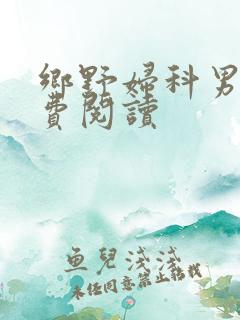 鄉野婦科男
費閱讀
魚兒淺淺
未經同意禁止轉載